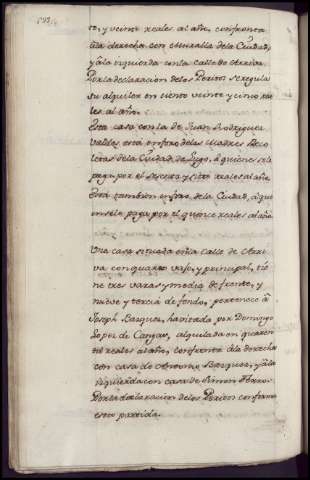 to, y veinte reales al año, confronta
a la derecha con Muralla de la Ciudad,
y a la izquierda con la Calle de Arriba
Por la declaracion de los Peritos se regula
su alquiler en ciento veinte y cinco rea
les al año.
Esta casa con la de Juan Rodriguez
Valdes, está en foro de las Madres Reco
letas de la Ciudad de Lugo, á quienes se le
paga por el sesenta y ocho reales al año
Está tambien en foro de la Ciudad, á que
in se le paga por el quince reales al año

Una casa situada en la Calle de Arri
va con quarto vajo, y principal, tie
ne tres varas y media de frente, y
nueve y tercia de fondo, pertenece á
Joseph Basques, havitada por Domingo
Lopez de Cangas, alquilada en quaren
ta reales al año, confronta á la derecha
con casa de Antonio Basques, y a la
izquierda con casa de Simon
Por la declaracion de los Peritos conforma
esta partida.